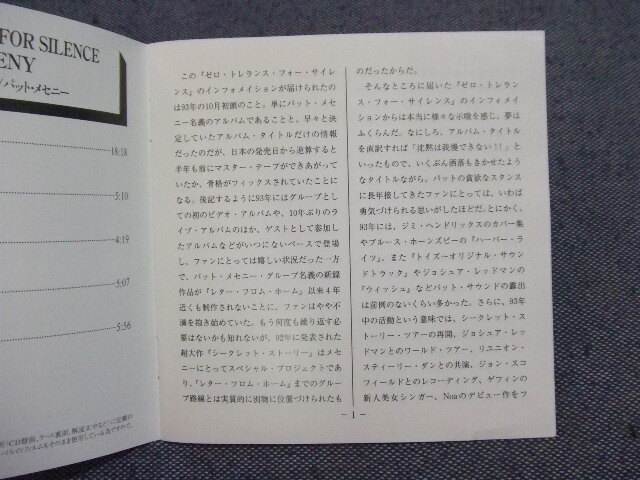 FOR SILENCE
ENY
パット・メセニー
18:18
5:10
4:19
5:07
5:56
この『ゼロ・トレランス・フォー・サイレ
ンス』のインフォメイションが届けられたの
は93年の10月初頭のこと。単にパット・メセ
ニー名義のアルバムであることと、早々と決
定していたアルバム・タイトルだけの情報
だったのだが、日本の発売日から逆算すると
半年も前にマスター・テープができあがって
いたか、骨格がフィックスされていたことに
なる。後記するように93年にはグループとし
ての初のビデオ・アルバムや、10年ぶりのラ
イブ・アルバムのほか、ゲストとして参加し
たアルバムなどがいつにないペースで登場
し、ファンにとっては嬉しい状況だった一方
で、パット・メセニー・グループ名義の新録
作品が『レター・フロム・ホーム』以来4年
近くも制作されないことに、ファンはやや不
満を抱き始めていた。もう何度も繰り返す必
要はないかも知れないが、92年に発表された
超大作『シークレット・ストーリー』はメセ
ニーにとってスペシャル・プロジェクトであ
り、『レター・フロム・ホーム』までのグルー
プ路線とは実質的に別物に位置づけられたも
のだったからだ。
そんなところに届いた『ゼロ・トレラン
ス・フォー・サイレンス』のインフォメイ
ションからは本当に様々な示唆を感じ、夢は
ふくらんだ。なにしろ、アルバム・タイトル
を直訳すれば「沈黙は我慢できない!!」と
いったもので、いくぶん洒落もきかせたよう
なタイトルながら、パットの貪欲なスタンス
に長年接してきたファンにとっては、いわば
勇気づけられる思いがしたほどだ。とにかく、
93年には、ジミ・ヘンドリックスのカバー集
やブルース・ホーンズビーの『ハーバー・ラ
イツ』、また『トイズーオリジナル・サウン
ドトラック』やジョシュア・レッドマンの
『ウィッシュ』などパット・サウンドの露出
は前例のないくらい多かった。さらに、93年
中の活動という意味では、シークレット・ス
トーリー・ツアーの再開、ジョシュア・レッ
ドマンとのワールド・ツアー、リユニオン・
スティーリー・ダンとの共演、ジョン・スコ
フィールドとのレコーディング、ゲフィンの
新人美女シンガー、Noaのデビュー作をフ
－1－